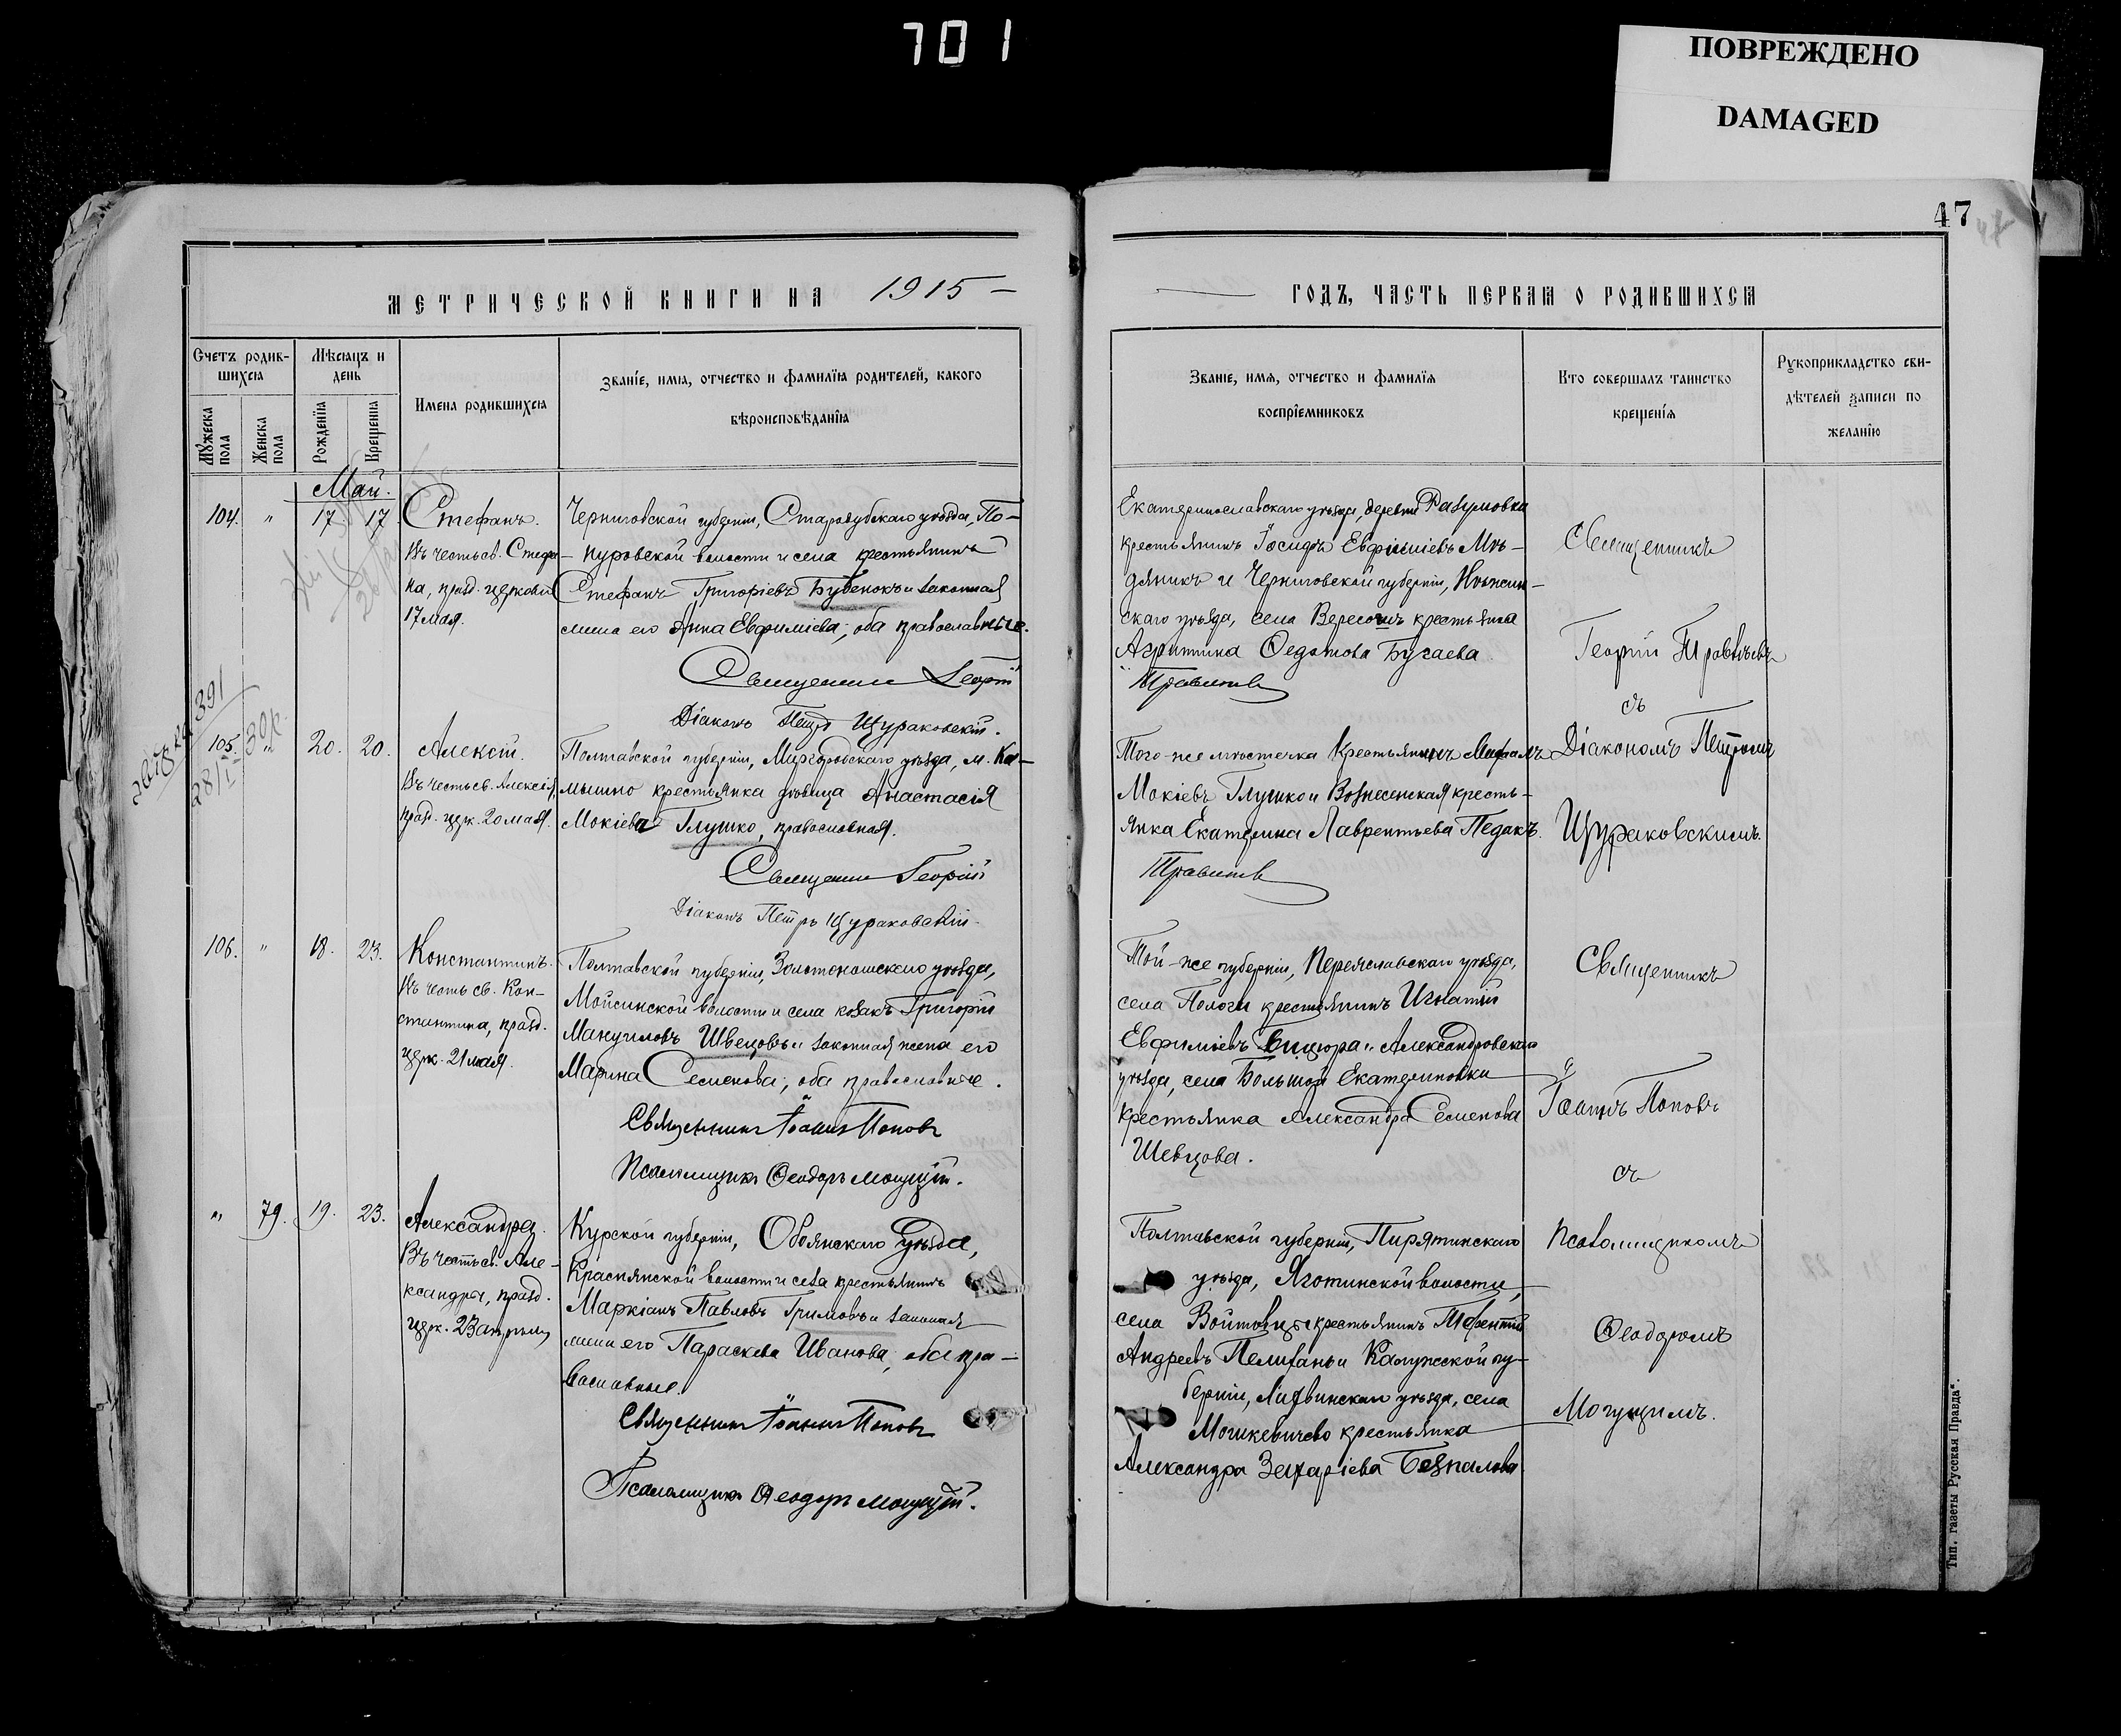 701
ПОВРЕЖДЕНО
DAMAGED
47
МЕТРИЧЕСКОЙ КНИГИ НА 1915 –
Счетъ родив-
шихся
Мѣсяцъ и
день
Имена родившихся
Званіе, имя, отчество и фамилія родителей, какого
вѣроисповѣданія
Мужеска
пола
Женска
пола
Рожденія
Крещенія
Май.
104. " 17. 17.
Стефанъ.
Въ честь св. Стефа-
на, празд. церковью
17 мая.
Черниговской губерніи, Стародубскаго уѣзда, По-
нуровской волости и села крестьянинъ
Стефанъ Григоріевъ Бубенокъ и законная
жена его Анна Евфиміева; оба православные.
Священникъ Георгій
Діаконъ Петръ Щураковскій.
391
28/I 30 г.
105. " 20. 20.
Алексій.
Въ честь св. Алексія,
празд. церк. 20 мая.
Полтавской губерніи, Миргородскаго уѣзда, м. Ка-
мышно крестьянка дѣвица Анастасія
Мокіева Глушко, православная.
Священникъ Георгій
Діаконъ Петръ Щураковскій.
106. " 18. 23.
Константинъ.
Въ честь св. Кон-
стантина, празд.
церк. 21 мая.
Полтавской губерніи, Золотоношскаго уѣзда,
Мойсинской волости и села козакъ Григорій
Мануиловъ Швецовъ и законная жена его
Марина Семенова; оба православные.
Священникъ Іоаннъ Поповъ
Псаломщикъ Ѳеодоръ Могущій.
" 79. 19. 23.
Александра.
Въ честь св. Але-
ксандры, празд.
церк. 23 апрѣля
Курской губерніи, Обоянскаго уѣзда,
Краснянской волости и села крестьянинъ
Маркіанъ Павловъ Гримовъ и законная
жена его Параскева Иванова; оба пра-
вославные.
Священникъ Іоаннъ Поповъ
Псаломщикъ Ѳеодоръ Могущій.
ГОДЪ, ЧАСТЬ ПЕРВАЯ О РОДИВШИХСЯ
Званіе, имя, отчество и фамилія
воспріемниковъ
Кто совершалъ таинство
крещенія
Рукоприкладство сви-
дѣтелей записи по
желанію
Екатеринославскаго уѣзда, деревни Разумовки
крестьянинъ Іосифъ Евфиміевъ Мѣ-
дяникъ и Черниговской губерніи, Нѣжин-
скаго уѣзда, села Вересочъ крестьянка
Агриппина Ѳедотова Бугаева.
Того-же мѣстечка крестьянинъ
Мокіевъ Глушко и Вознесенская кресть-
янка Екатерина Лаврентьева Педакъ.
Той-же губерніи, Переяславскаго уѣзда,
села Пологи крестьянинъ Игнатій
Евфиміевъ и Александровскаго
уѣзда, села Большой Екатериновки
крестьянка Александра Семенова
Шевцова.
Полтавской губерніи, Пирятинскаго
уѣзда, Яготинской волости,
села крестьянинъ
Андреевъ и Калужской гу-
берніи, Лихвинскаго уѣзда, села
Мошкевичево крестьянка
Александра Захаріева Безпалова
Священникъ
Георгій
съ
Діакономъ Петромъ
Щураковскимъ.
Священникъ
Іоаннъ Поповъ
съ
Псаломщикомъ
Ѳеодоромъ
Могущимъ.
Тип. газеты „Русская Правда“.